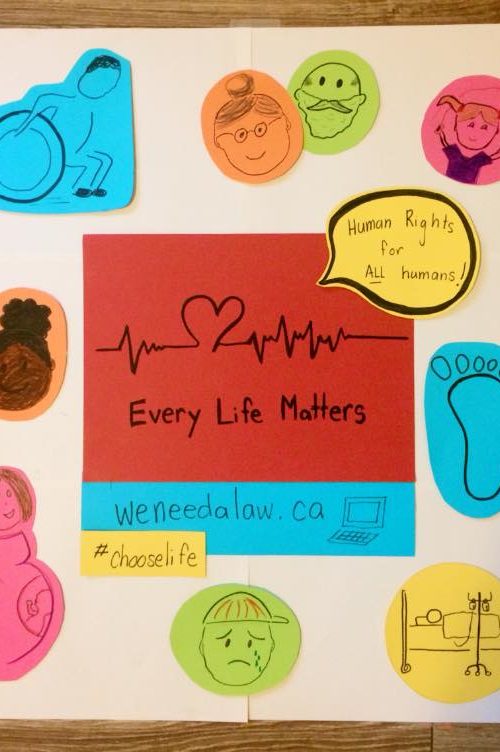 Human Rights
for
ALL humans!
Every Life Matters
weneedalaw.ca
#chooselife